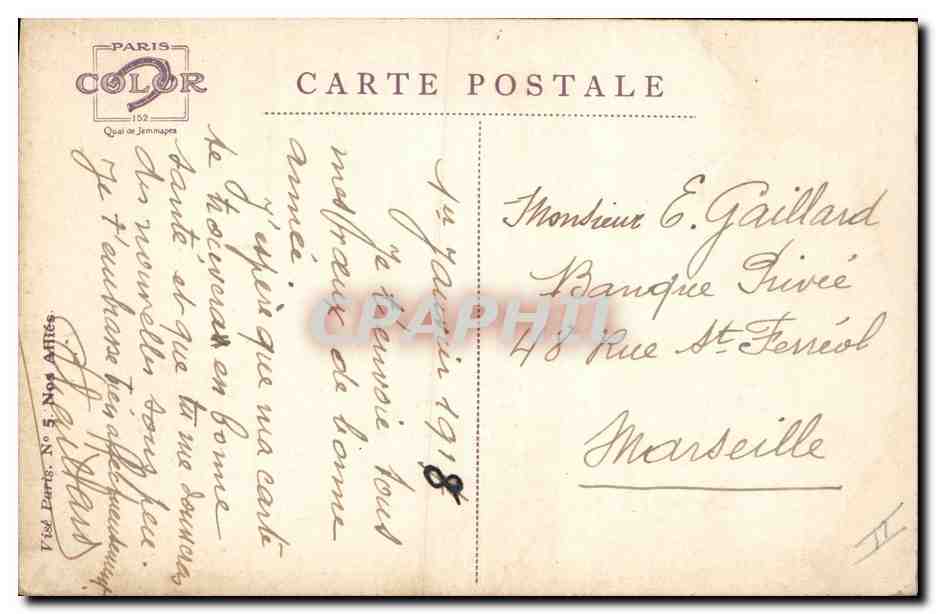 PARIS
COLOR
152
Quai de Jemmapes
CARTE POSTALE
1er Janvier 1918
Je t'envoie tous
mes vœux de bonne
année
J'espère que ma carte
te trouvera en bonne
santé et que tu me donneras
des nouvelles sous peu.
Je t'embrasse bien affectueusement.
Gaillard
Visé Paris. No 5. Nos Alliés.
Monsieur E. Gaillard
Banque Privée
48 Rue St. Ferréol
Marseille
II
CPAPHIL